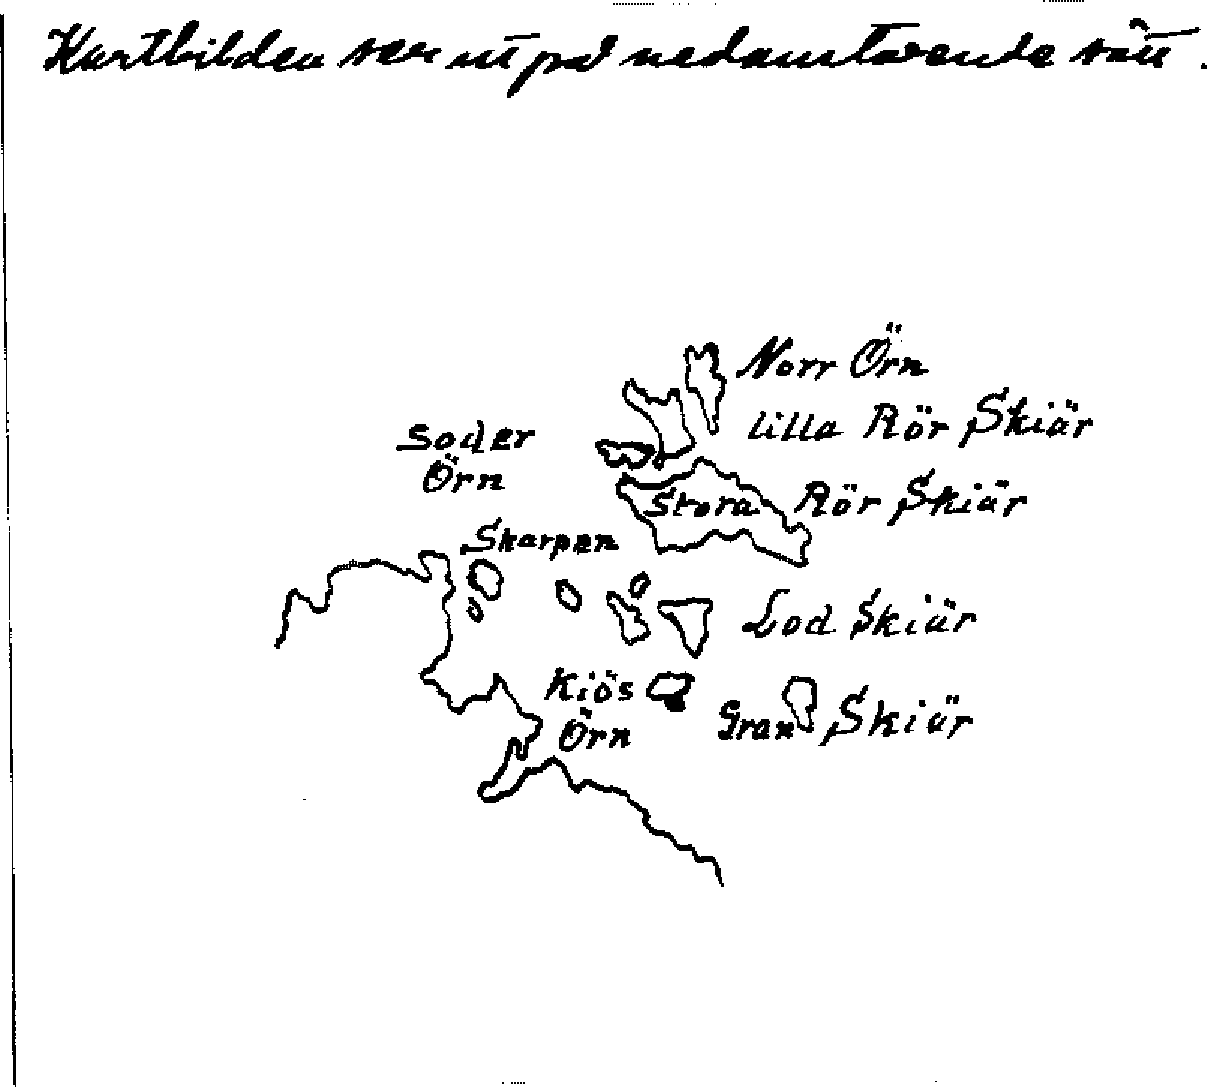 Kartbilden ser ut på nedanstående sätt.
Norr Örn
lilla Rör Skiär
Soder
Örn
Stora Rör Skiär
Skarpen
Lod Skiär
Kiös
Örn
Gran Skiär